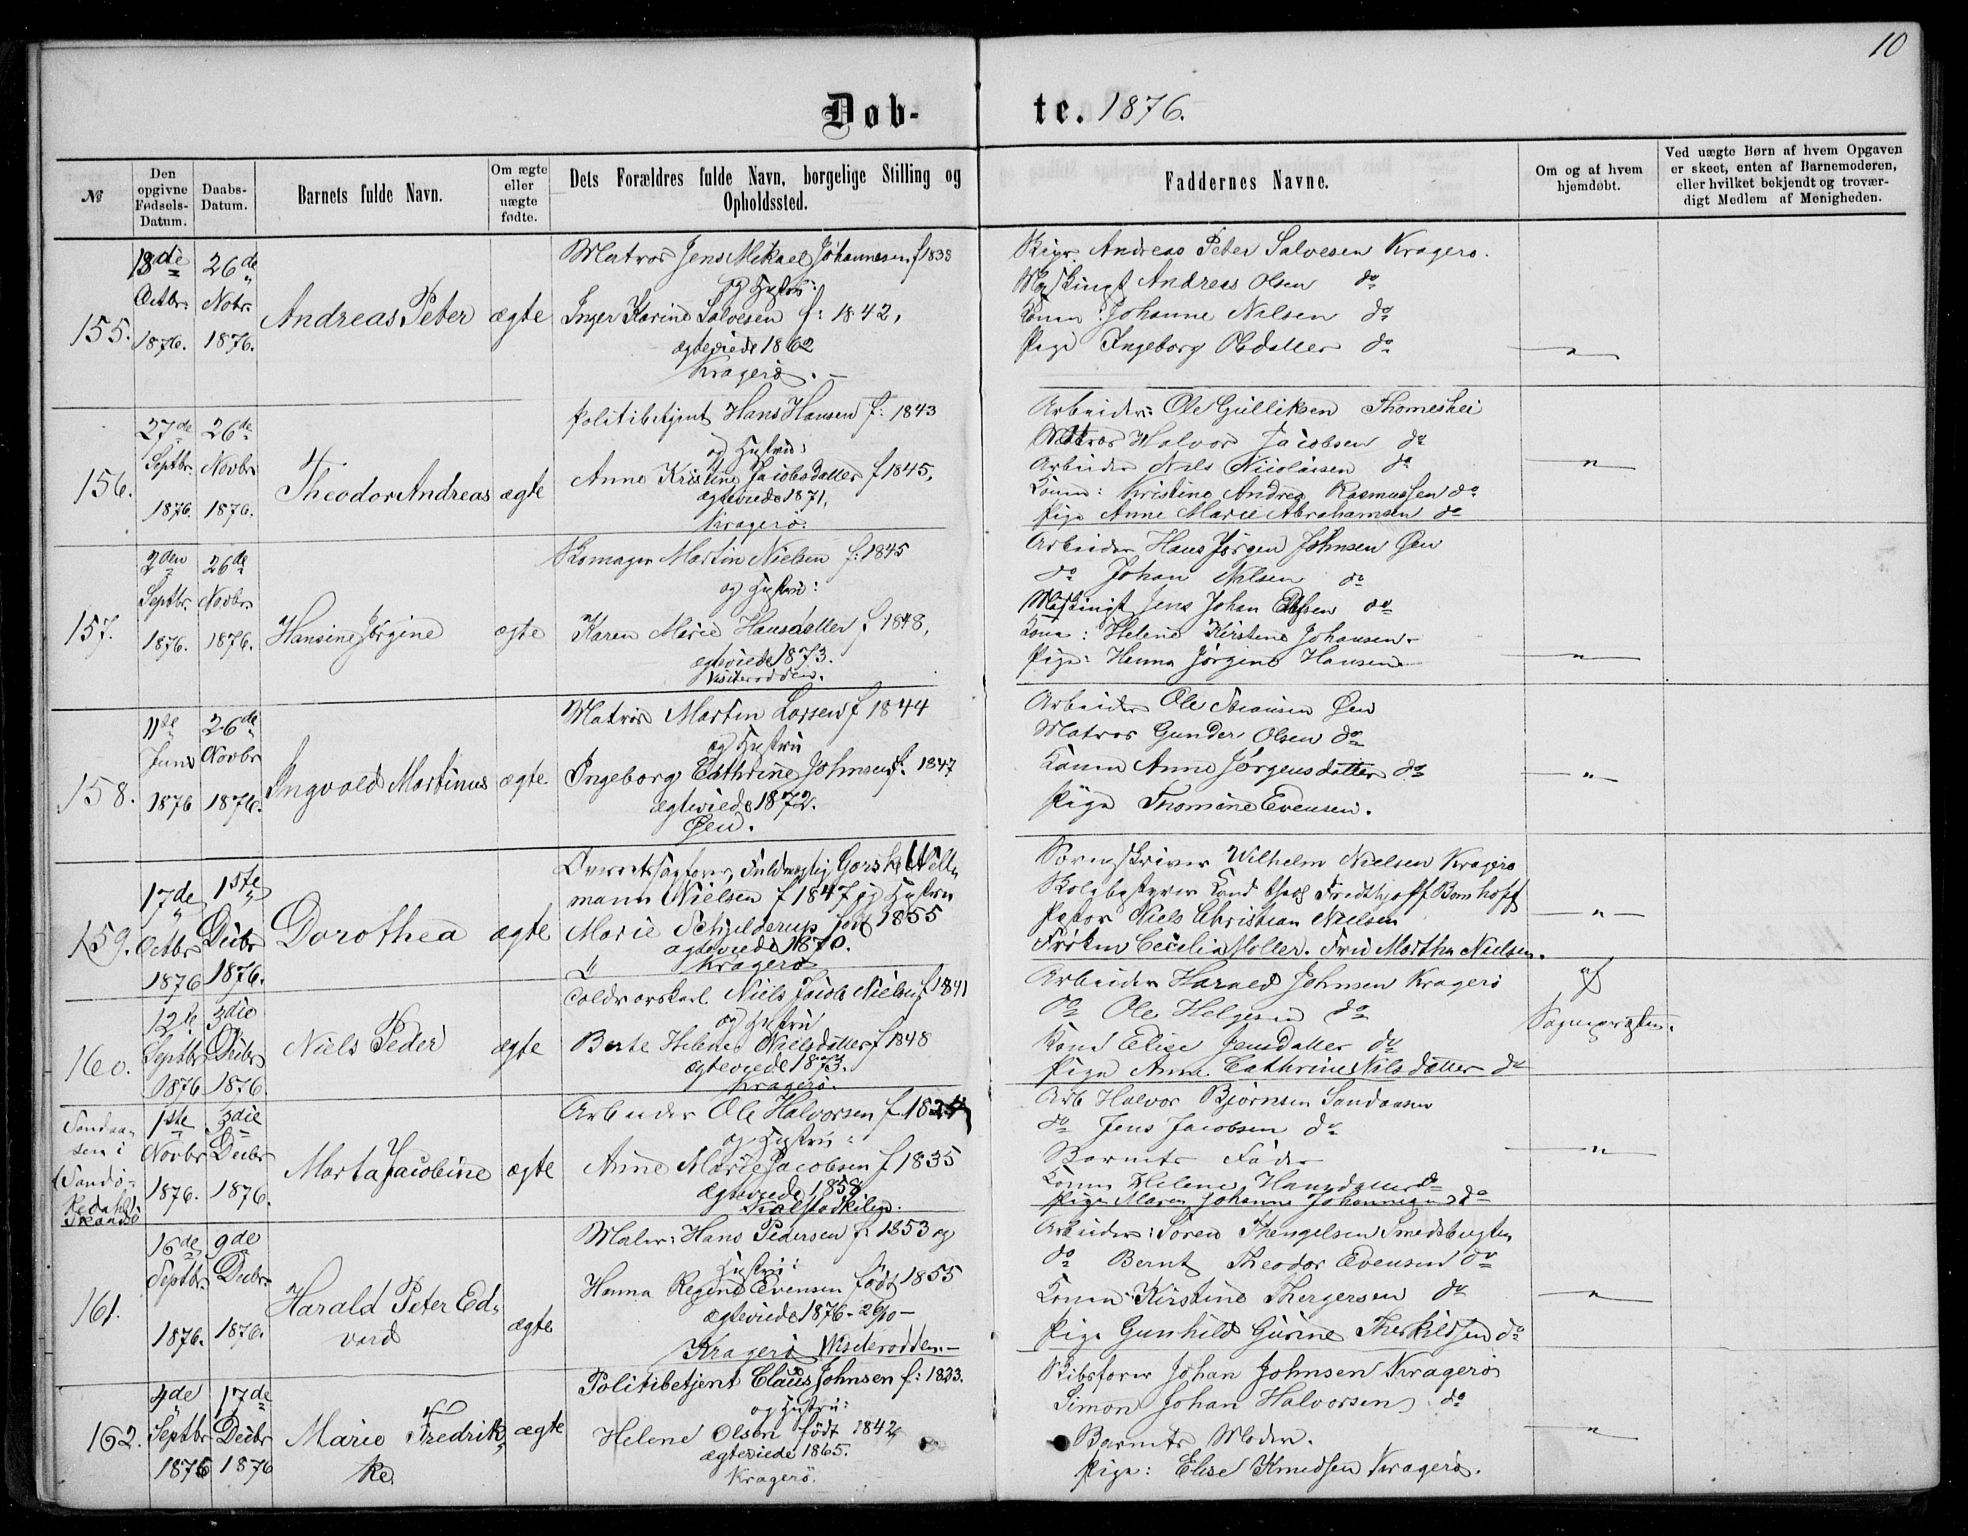 10
Døb-
te. 1876.
№
Den opgivne Fødsels-Datum.
Daabs-Datum.
Barnets fulde Navn.
Om ægte eller uægte fødte.
Dets Forældres fulde Navn, borgelige Stilling og Opholdssted.
Faddernes Navne.
Om og af hvem hjemdøbt.
Ved uægte Børn af hvem Opgaven er skeet, enten af Barnemoderen, eller hvilket bekjendt og trovær-digt Medlem af Menigheden.
155.
18de Octbr. 1876.
26de Novbr. 1876.
Andreas Peter
ægte
Matros Jens Mikael Johannesen f 1838
og Hustru:
Inger Karine Salvesen f: 1842,
ægteviede 1862
Kragerø. —
Skipr. Andreas Peter Salvesen Kragerø.
Andreas Olsen do
Konen: Johanne Nilsen do
Pige Ingeborg Olsdatter do
— " —
156.
27de Septbr. 1876.
26de Novbr. 1876.
Theodor Andreas
ægte
Politibetjent Hans Hansen f: 1843
og Hustru:
Anne Kristine Jacobsdatter f 1845,
ægteviede 1871,
Kragerø.
Arbeider: Ole Gulliksen Thomeshei
Matros Halvor Jacobsen do
Arbeider Nils Nicolaisen do
Konen: Kristine Andrea Rasmussen do
Pige Anne Marie Abrahamsen do
— " —
157.
2den Septbr. 1876.
26de Novbr. 1876.
Hansine Jørgine
ægte
Skomager Martin Nielsen f: 1845
og Hustru:
Karen Marie Hansdatter f 1848,
ægteviede 1873.
Arbeider Hans Jørgen Johnsen Øen
do Johan Nilsen do
Jens Johan do
Kona: Helene Kirstine Johansen
Pige: Hanna Jørgine Hansen
— " —
158.
11te Juni 1876
26de Novbr 1876.
Ingvald Martinus
ægte
Matros Martin Larsen f 1844
og Hustru
Ingeborg Cathrine Johnsen f. 1847
ægteviede 1872.
Øen.
Arbeider Ole Øen
Matros Gunder Olsen do
Konen Anne Jørgensdatter do
Pige Thomine Evensen.
— " —
159.
17de Octbr 1876
1ste Decbr 1876.
Dorothea
ægte
Overretssagfører, Fuldmægtig Well-
mann Nielsen f 1847 og Hustru
Marie Schjelderup født 1855
ægteviede 1870.
Kragerø
Sorenskriver Wilhelm Nielsen Kragerø
Skolebestyrer Cand. theol Fredthjoff Bomhoff
Pastor Niels Christian Nielsen
Frøken Cecilia Møller. Fru Martha Nielsen.
— " —
160.
12te Septbr 1876
3die Decbr 1876.
Niels Peder
ægte
Toldrorskarl Niels Jacob Nielsen f 1841
og Hustru
Berte Helene Nielsdatter f 1848
ægteviede 1873.
Kragerø.
Arbeider Harald Johnsen Kragerø
do Ole Helgesen do
Kone Elise Jensdatter do
Pige Anne Cathrine Nilsdatter do
af
Sognepræsten.
1ste Novbr 1876.
3die Decbr 1876.
Marta Jacobine
ægte
Arbeider Ole Halvorsen f.
og Hustru:
Anne Marie Jacobsen f 1835
ægteviede 1858
Arb Halvor Bjørnsen Sandaasen
do Jens Jacobsen do
Barnets Fader
Konen Helene Hansdatter do
Pige Maren Johanne Johannesen do
— " —
161.
16de Septbr. 1876.
9de Decbr. 1876.
Harald Peter Ed-
vard
ægte
Maler: Hans Pedersen f: 1853 og
Hustru:
Hanna Regine Evensen født 1855
ægteviede 1876 - 26/10 —
Kragerø —
Arbeider: Søren Thengelsen Smedsbugten
do Bernt Theodor Evensen do
Konen: Kirstine Thergersen do
Pige Gunhild Gurine Therkildsen do
— " —
162.
4de Septbr 1876
17de Decbr 1876
Marie Fredrik-
ke
ægte
Politibetjent Claus Johnsen f: 1833.
og Hustru:
Helene Olsen født 1842
ægteviede 1865.
Kragerø.
Skibsfører Johan Johnsen Kragerø
Simon Johan Halvorsen do
Barnets Moder.
Pige: Elise Knudsen Kragerø.
— " —